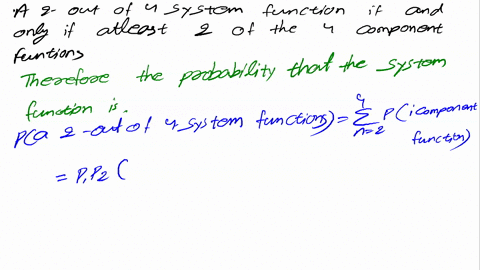 A 2-out of 4 system function if and
only if atleast 2 of the 4 component
funtions
Therefore the probability that the system
function is.
P(a 2-out of 4 system functions) = \sum_{n=2}^{4} P(i component function)
= P_1 P_2 (